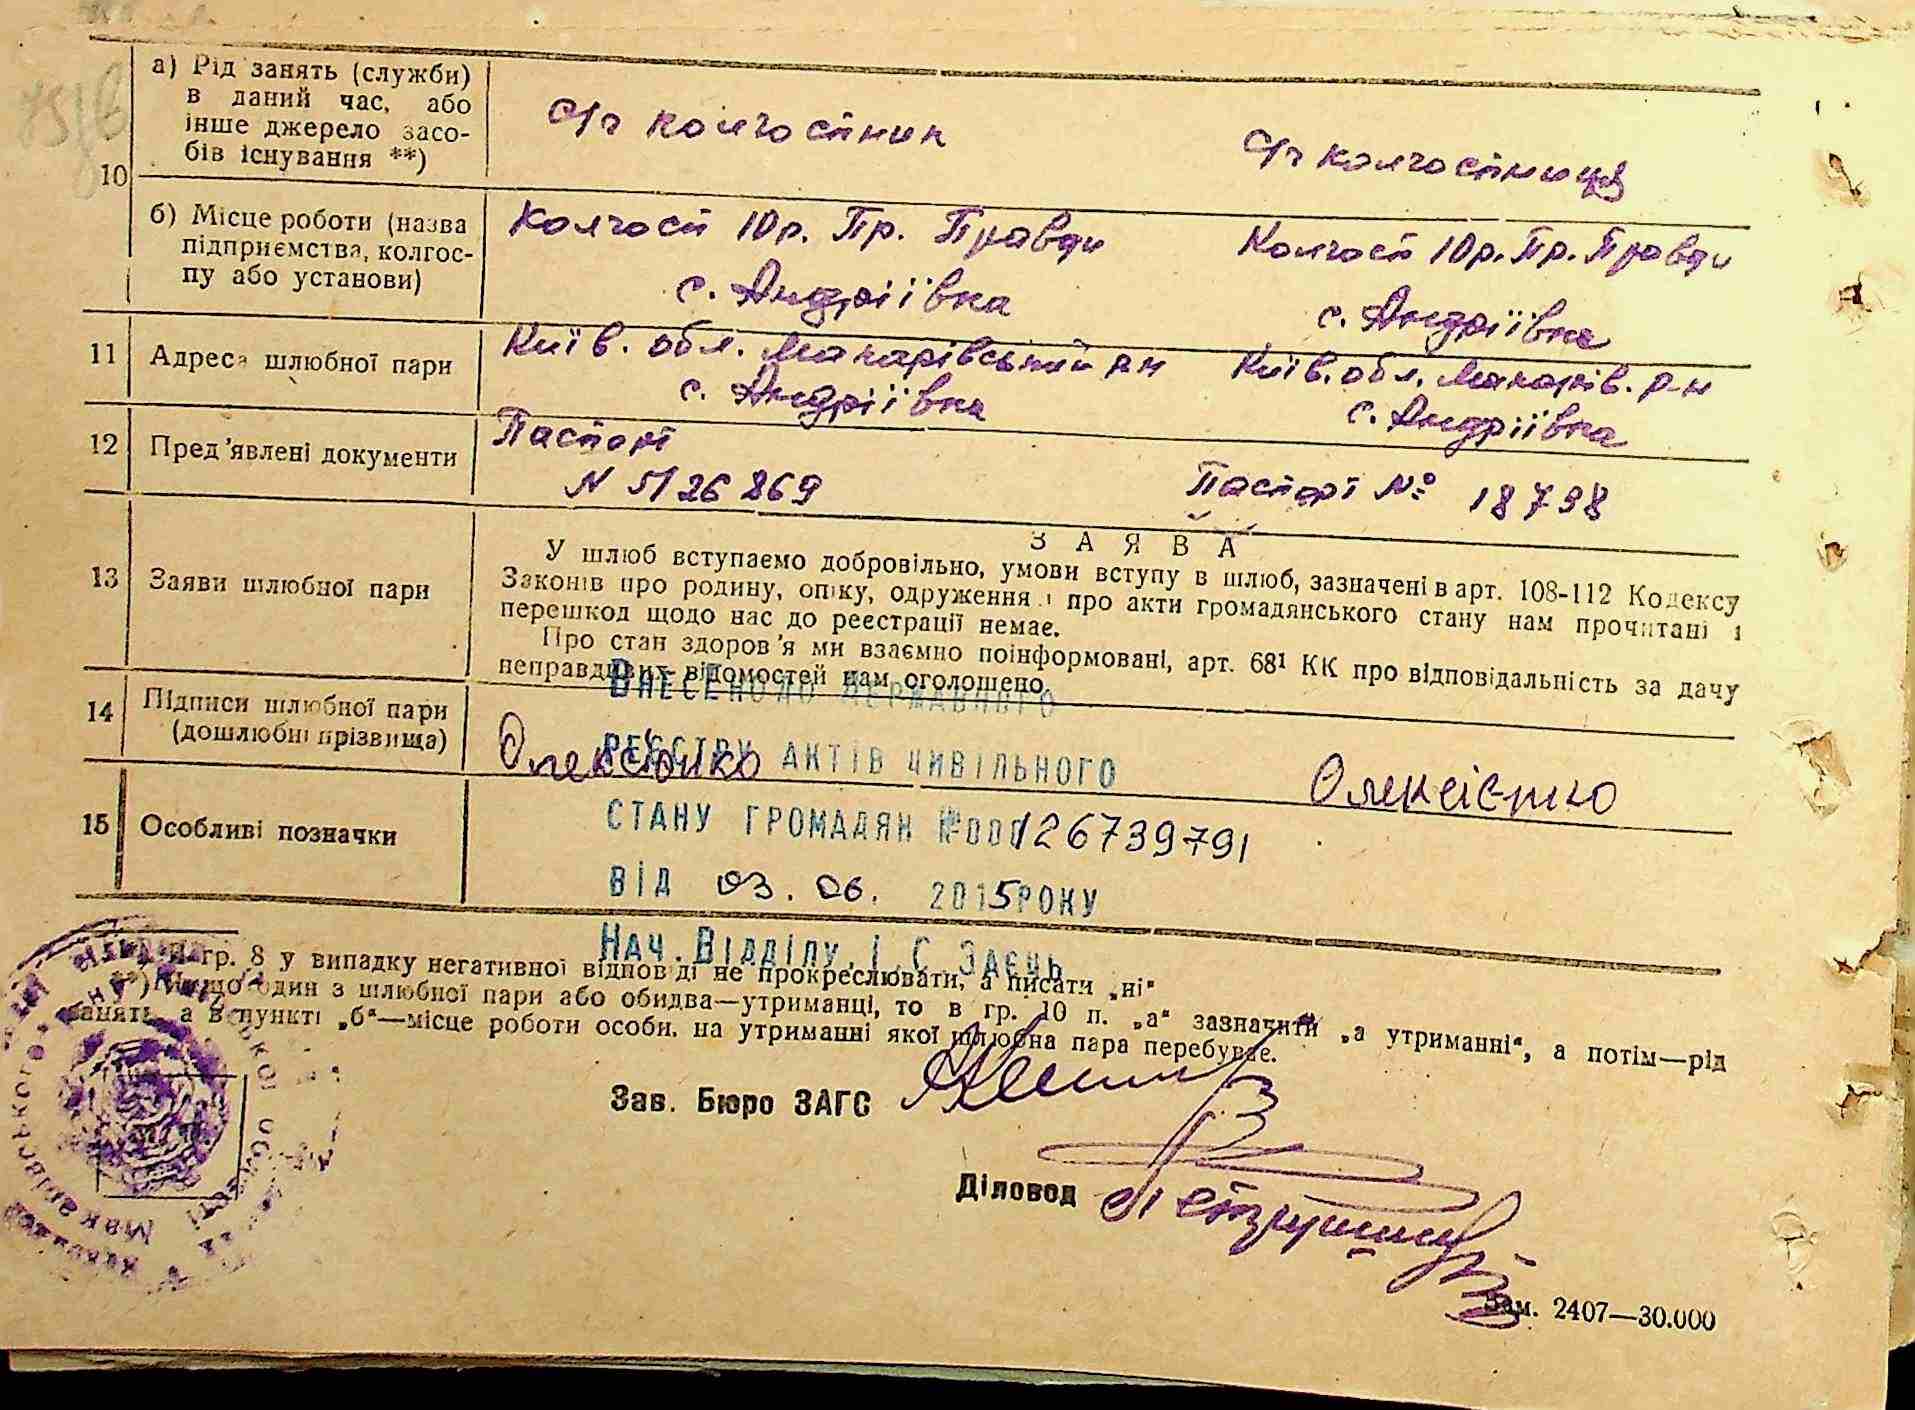 а) Рід занять (служби)
в даний час, або
інше джерело засо-
бів існування **)
с/г колгоспник
с/г колгоспниця
10
б) Місце роботи (назва
підприємства, колгос-
пу або установи)
Колгосп 10р. Пр. Правди
с. Андріївка
Колгосп 10р. Пр. Правди
с. Андріївка
11 Адреса шлюбної пари
Київ. обл. Макарівський р-н
с. Андріївка
Київ. обл. Макарів. р-н
с. Андріївка
12 Пред'явлені документи
Паспорт
N 5126869
Паспорт № 18798
13 Заяви шлюбної пари
ЗАЯВА
У шлюб вступаємо добровільно, умови вступу в шлюб, зазначені в арт. 108-112 Кодексу
Законів про родину, опіку, одруження і про акти громадянського стану нам прочитані і
перешкод щодо нас до реєстрації немає.
Про стан здоров'я ми взаємно поінформовані, арт. 68¹ КК про відповідальність за дачу
неправдивих відомостей нам оголошено.
14 Підписи шлюбної пари
(дошлюбні прізвища)
Олексієнко
Олексієнко
15 Особливі позначки
ВНЕСЕНО ДО ДЕРЖАВНОГО
РЕЄСТРУ АКТІВ ЦИВІЛЬНОГО
СТАНУ ГРОМАДЯН №000126739791
ВІД 03. 06. 2015 РОКУ
НАЧ. ВІДДІЛУ І.С ЗАЄЦЬ
*) В гр. 8 у випадку негативної відповіді не прокреслювати, а писати „ні“
**) Якщо один з шлюбної пари або обидва—утриманці, то в гр. 10 п. „а“ зазначити „а утриманні“, а потім—рід
занять, а в пункті „б“—місце роботи особи, на утриманні якої шлюбна пара перебуває.
Зав. Бюро ЗАГС
Діловод
Зам. 2407—30.000